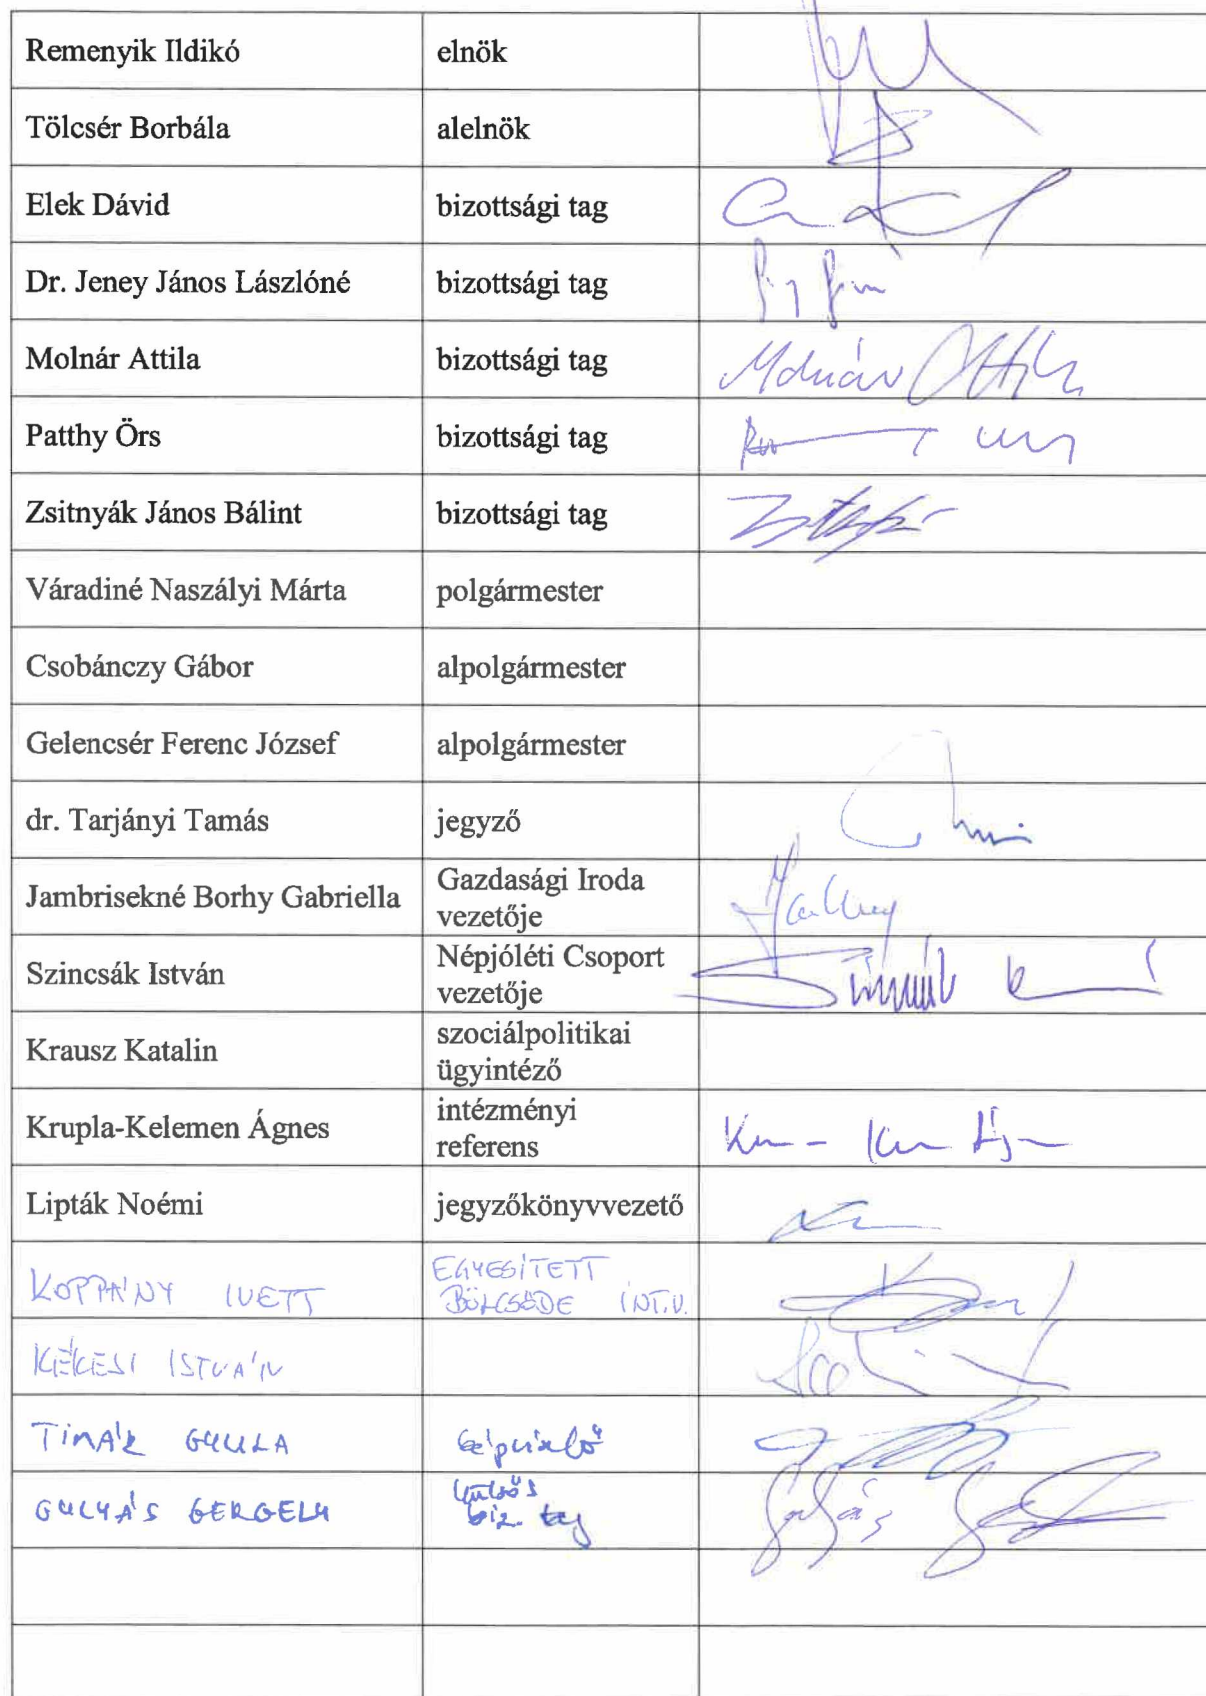 Remenyik Ildikó elnök
Tölcsér Borbála alelnök
Elek Dávid bizottsági tag
Dr. Jeney János Lászlóné bizottsági tag
Molnár Attila bizottsági tag Molnár Attila
Patthy Örs bizottsági tag
Zsitnyák János Bálint bizottsági tag
Váradiné Naszályi Márta polgármester
Csobánczy Gábor alpolgármester
Gelencsér Ferenc József alpolgármester
dr. Tarjányi Tamás jegyző
Jambrisekné Borhy Gabriella Gazdasági Iroda
vezetője
Szincsák István Népjóléti Csoport
vezetője
Krausz Katalin szociálpolitikai
ügyintéző
Krupla-Kelemen Ágnes intézményi
referens
Lipták Noémi jegyzőkönyvvezető
KOPPÁNY IVETT EGYESÍTETT
BÖLCSŐDE INT.V.
KÉKESI ISTVÁN
TIMÁR GYULA képviselő
GULYÁS GERGELY külsős
biz. tag Gulyás